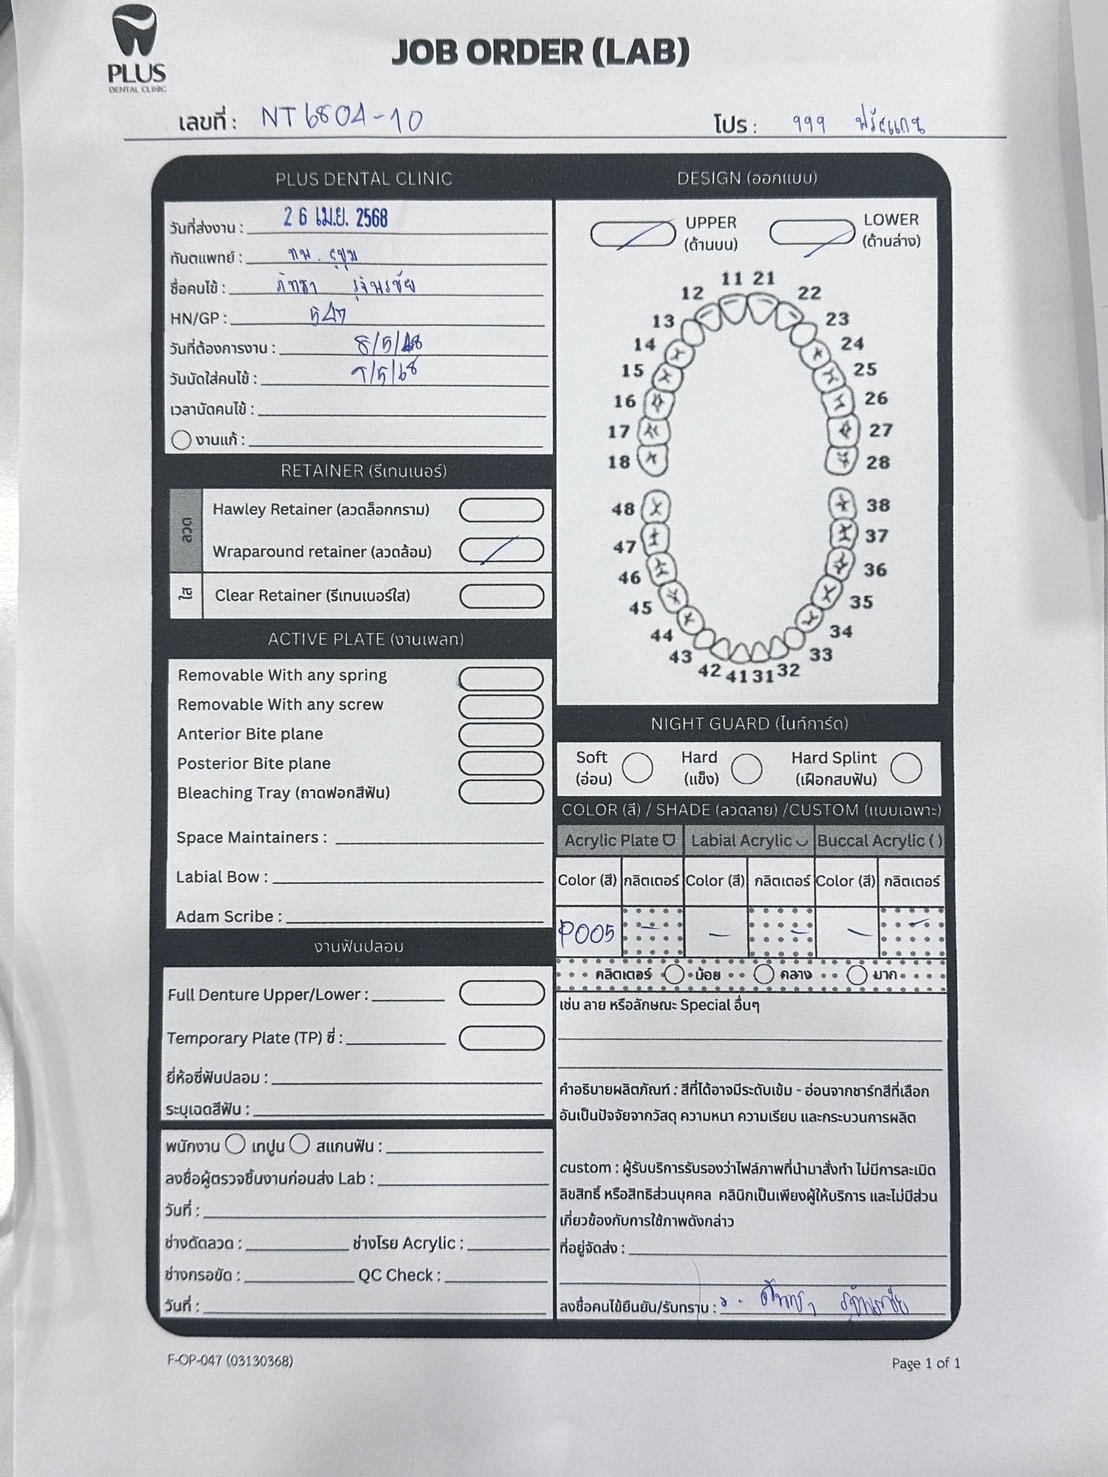 PLUS
DENTAL CLINIC
JOB ORDER (LAB)
เลขที่ : NT6804-10
โปร : 999 ฟรีสแกน
PLUS DENTAL CLINIC
วันที่ส่งงาน : 26 เม.ย. 2568
ทันตแพทย์ : ทพ.
ชื่อคนไข้ :
HN/GP : 547
วันที่ต้องการงาน : 8/5/68
วันนัดใส่คนไข้ : 9/5/68
เวลานัดคนไข้ :
งานแก้ :
RETAINER (รีเทนเนอร์)
ลวด
Hawley Retainer (ลวดล็อกกราม)
Wraparound retainer (ลวดล้อม)
ใส
Clear Retainer (รีเทนเนอร์ใส)
ACTIVE PLATE (งานเพลท)
Removable With any spring
Removable With any screw
Anterior Bite plane
Posterior Bite plane
Bleaching Tray (ถาดฟอกสีฟัน)
Space Maintainers :
Labial Bow :
Adam Scribe :
งานฟันปลอม
Full Denture Upper/Lower :
Temporary Plate (TP) ซี่ :
ยี่ห้อซี่ฟันปลอม :
ระบุเฉดสีฟัน :
พนักงาน เทปูน สแกนฟัน :
ลงชื่อผู้ตรวจชิ้นงานก่อนส่ง Lab :
วันที่ :
ช่างดัดลวด : ช่างโรย Acrylic :
ช่างกรอขัด : QC Check :
วันที่ :
DESIGN (ออกแบบ)
UPPER LOWER
(ด้านบน) (ด้านล่าง)
11 21
12 22
13 23
14 24
15 25
16 26
17 27
18 28
48 38
47 37
46 36
45 35
44 34
43 33
42 41 31 32
NIGHT GUARD (ไนท์การ์ด)
Soft Hard Hard Splint
(อ่อน) (แข็ง) (เฝือกสบฟัน)
COLOR (สี) / SHADE (ลวดลาย) /CUSTOM (แบบเฉพาะ)
Acrylic Plate Labial Acrylic Buccal Acrylic ( )
Color (สี) กลิตเตอร์ Color (สี) กลิตเตอร์ Color (สี) กลิตเตอร์
P005 - - - - -
กลิตเตอร์ น้อย กลาง มาก
เช่น ลาย หรือลักษณะ Special อื่นๆ
คำอธิบายผลิตภัณฑ์ : สีที่ได้อาจมีระดับเข้ม - อ่อนจากชาร์ทสีที่เลือก
อันเป็นปัจจัยจากวัสดุ ความหนา ความเรียบ และกระบวนการผลิต
custom : ผู้รับบริการรับรองว่าไฟล์ภาพที่นำมาสั่งทำ ไม่มีการละเมิด
ลิขสิทธิ์ หรือสิทธิส่วนบุคคล คลินิกเป็นเพียงผู้ให้บริการ และไม่มีส่วน
เกี่ยวข้องกับการใช้ภาพดังกล่าว
ที่อยู่จัดส่ง :
ลงชื่อคนไข้ยืนยัน/รับทราบ :
F-OP-047 (03130368)
Page 1 of 1